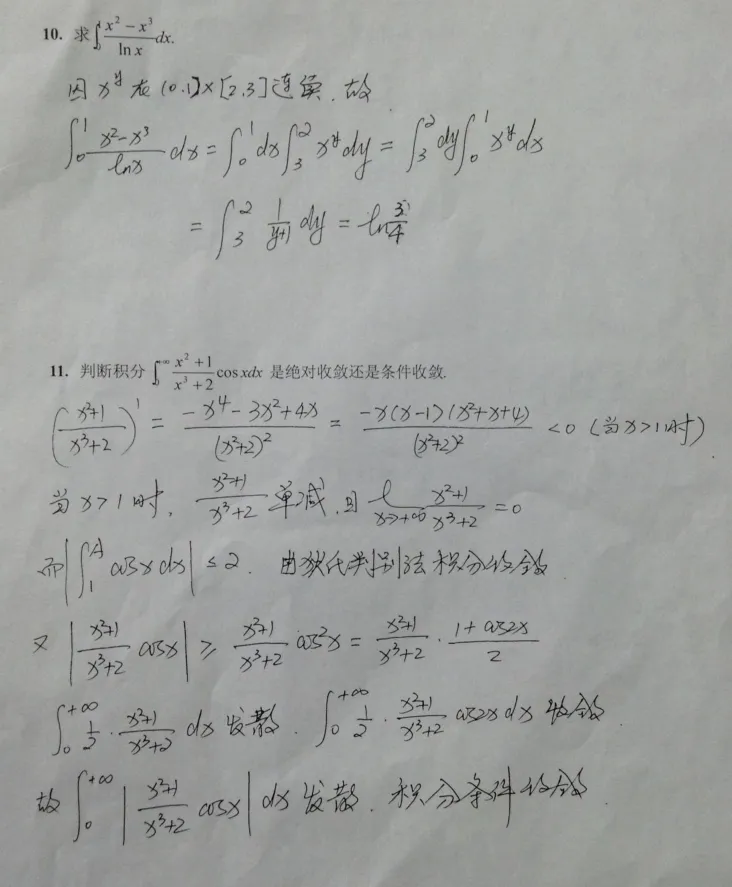 10. 求∫₀¹ (x² − x³)/(ln x) dx.
因 x^y 在 (0.1]×[2.3] 连续. 故
∫₀¹ (x²−x³)/(lnx) dx = ∫₀¹ dx ∫₃² x^y dy = ∫₃² dy ∫₀¹ x^y dx
= ∫₃² 1/(y+1) dy = ln 3/4
11. 判断积分 ∫₀^{+∞} (x² + 1)/(x³ + 2) cos xdx 是绝对收敛还是条件收敛.
((x²+1)/(x³+2))' = (−x⁴ − 3x² + 4x)/(x³+2)² = (−x(x−1)(x²+x+4))/(x³+2)² < 0 (当 x>1 时)
当 x>1 时, (x²+1)/(x³+2) 单减, 且 l_{x→+∞} (x²+1)/(x³+2) = 0
而 |∫₁^A cosx dx| ≤ 2. 由狄氏判别法 积分收敛
又 |(x²+1)/(x³+2) cosx| ≥ (x²+1)/(x³+2) cos²x = (x²+1)/(x³+2) · (1+cos2x)/2
∫₀^{+∞} 1/2 · (x²+1)/(x³+2) dx 发散. ∫₀^{+∞} 1/2 · (x²+1)/(x³+2) cos2x dx 收敛.
故 ∫₀^{+∞} |(x²+1)/(x³+2) cosx| dx 发散. 积分条件收敛